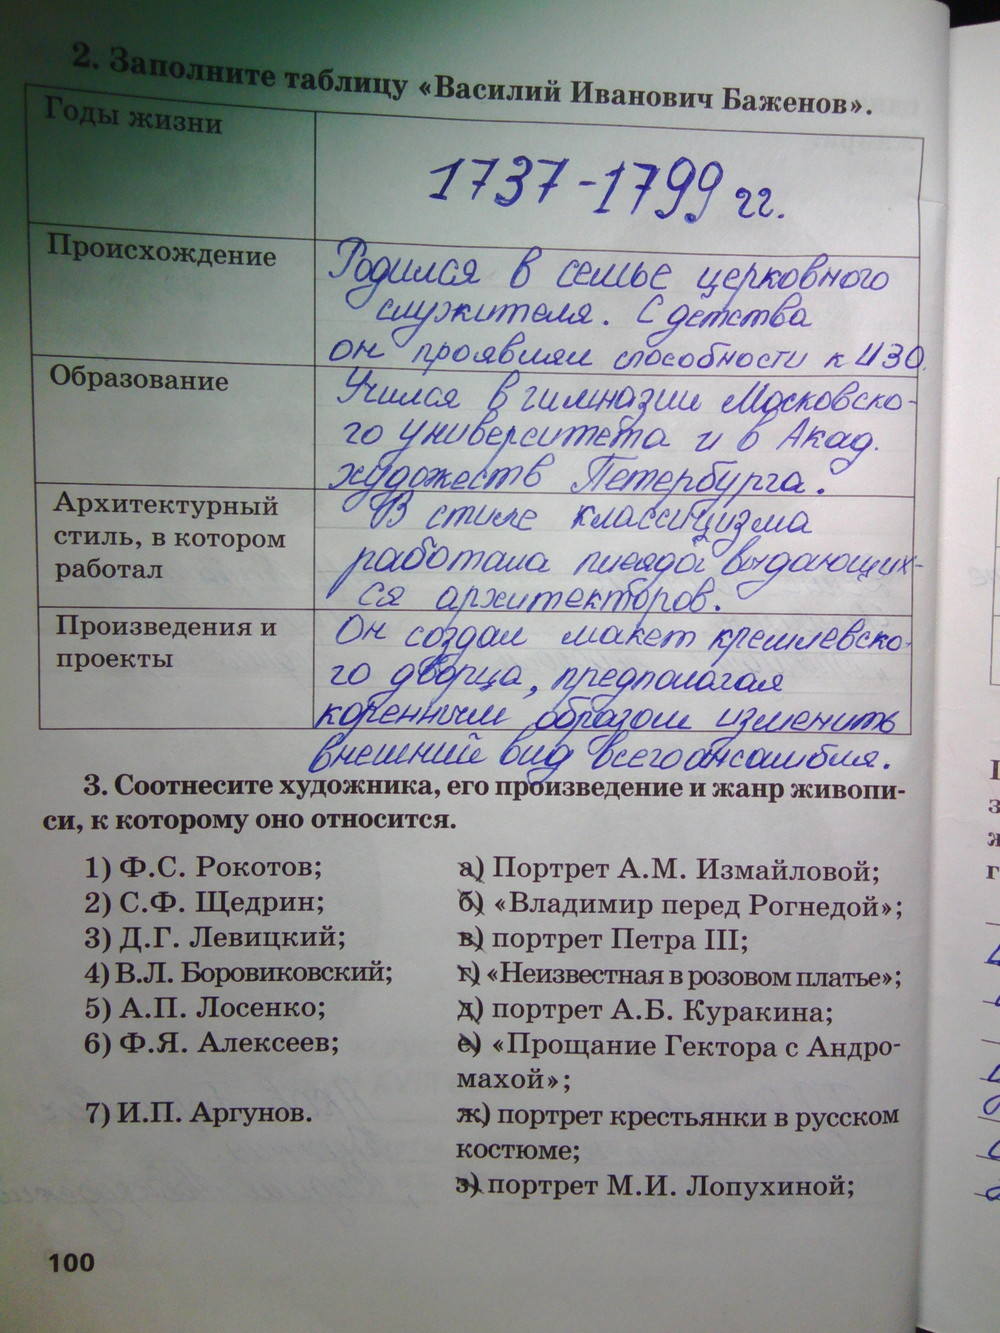 2. Заполните таблицу «Василий Иванович Баженов».
Годы жизни
1737-1799 гг.
Происхождение
Родился в семье церковного
служителя. С детства
он проявлял способности к ИЗО.
Образование
Учился в гимназии Московско-
го университета и в Акад.
художеств Петербурга.
Архитектурный
стиль, в котором
работал
В стиле классицизма
работала плеяда выдающих-
ся архитекторов.
Произведения и
проекты
Он создал макет кремлевско-
го дворца, предполагая
коренным образом изменить
внешний вид всего ансамбля.
3. Соотнесите художника, его произведение и жанр живопи-
си, к которому оно относится.
1) Ф.С. Рокотов;
2) С.Ф. Щедрин;
3) Д.Г. Левицкий;
4) В.Л. Боровиковский;
5) А.П. Лосенко;
6) Ф.Я. Алексеев;
7) И.П. Аргунов.
а) Портрет А.М. Измайловой;
б) «Владимир перед Рогнедой»;
в) портрет Петра III;
г) «Неизвестная в розовом платье»;
д) портрет А.Б. Куракина;
е) «Прощание Гектора с Андро-
махой»;
ж) портрет крестьянки в русском
костюме;
з) портрет М.И. Лопухиной;
100